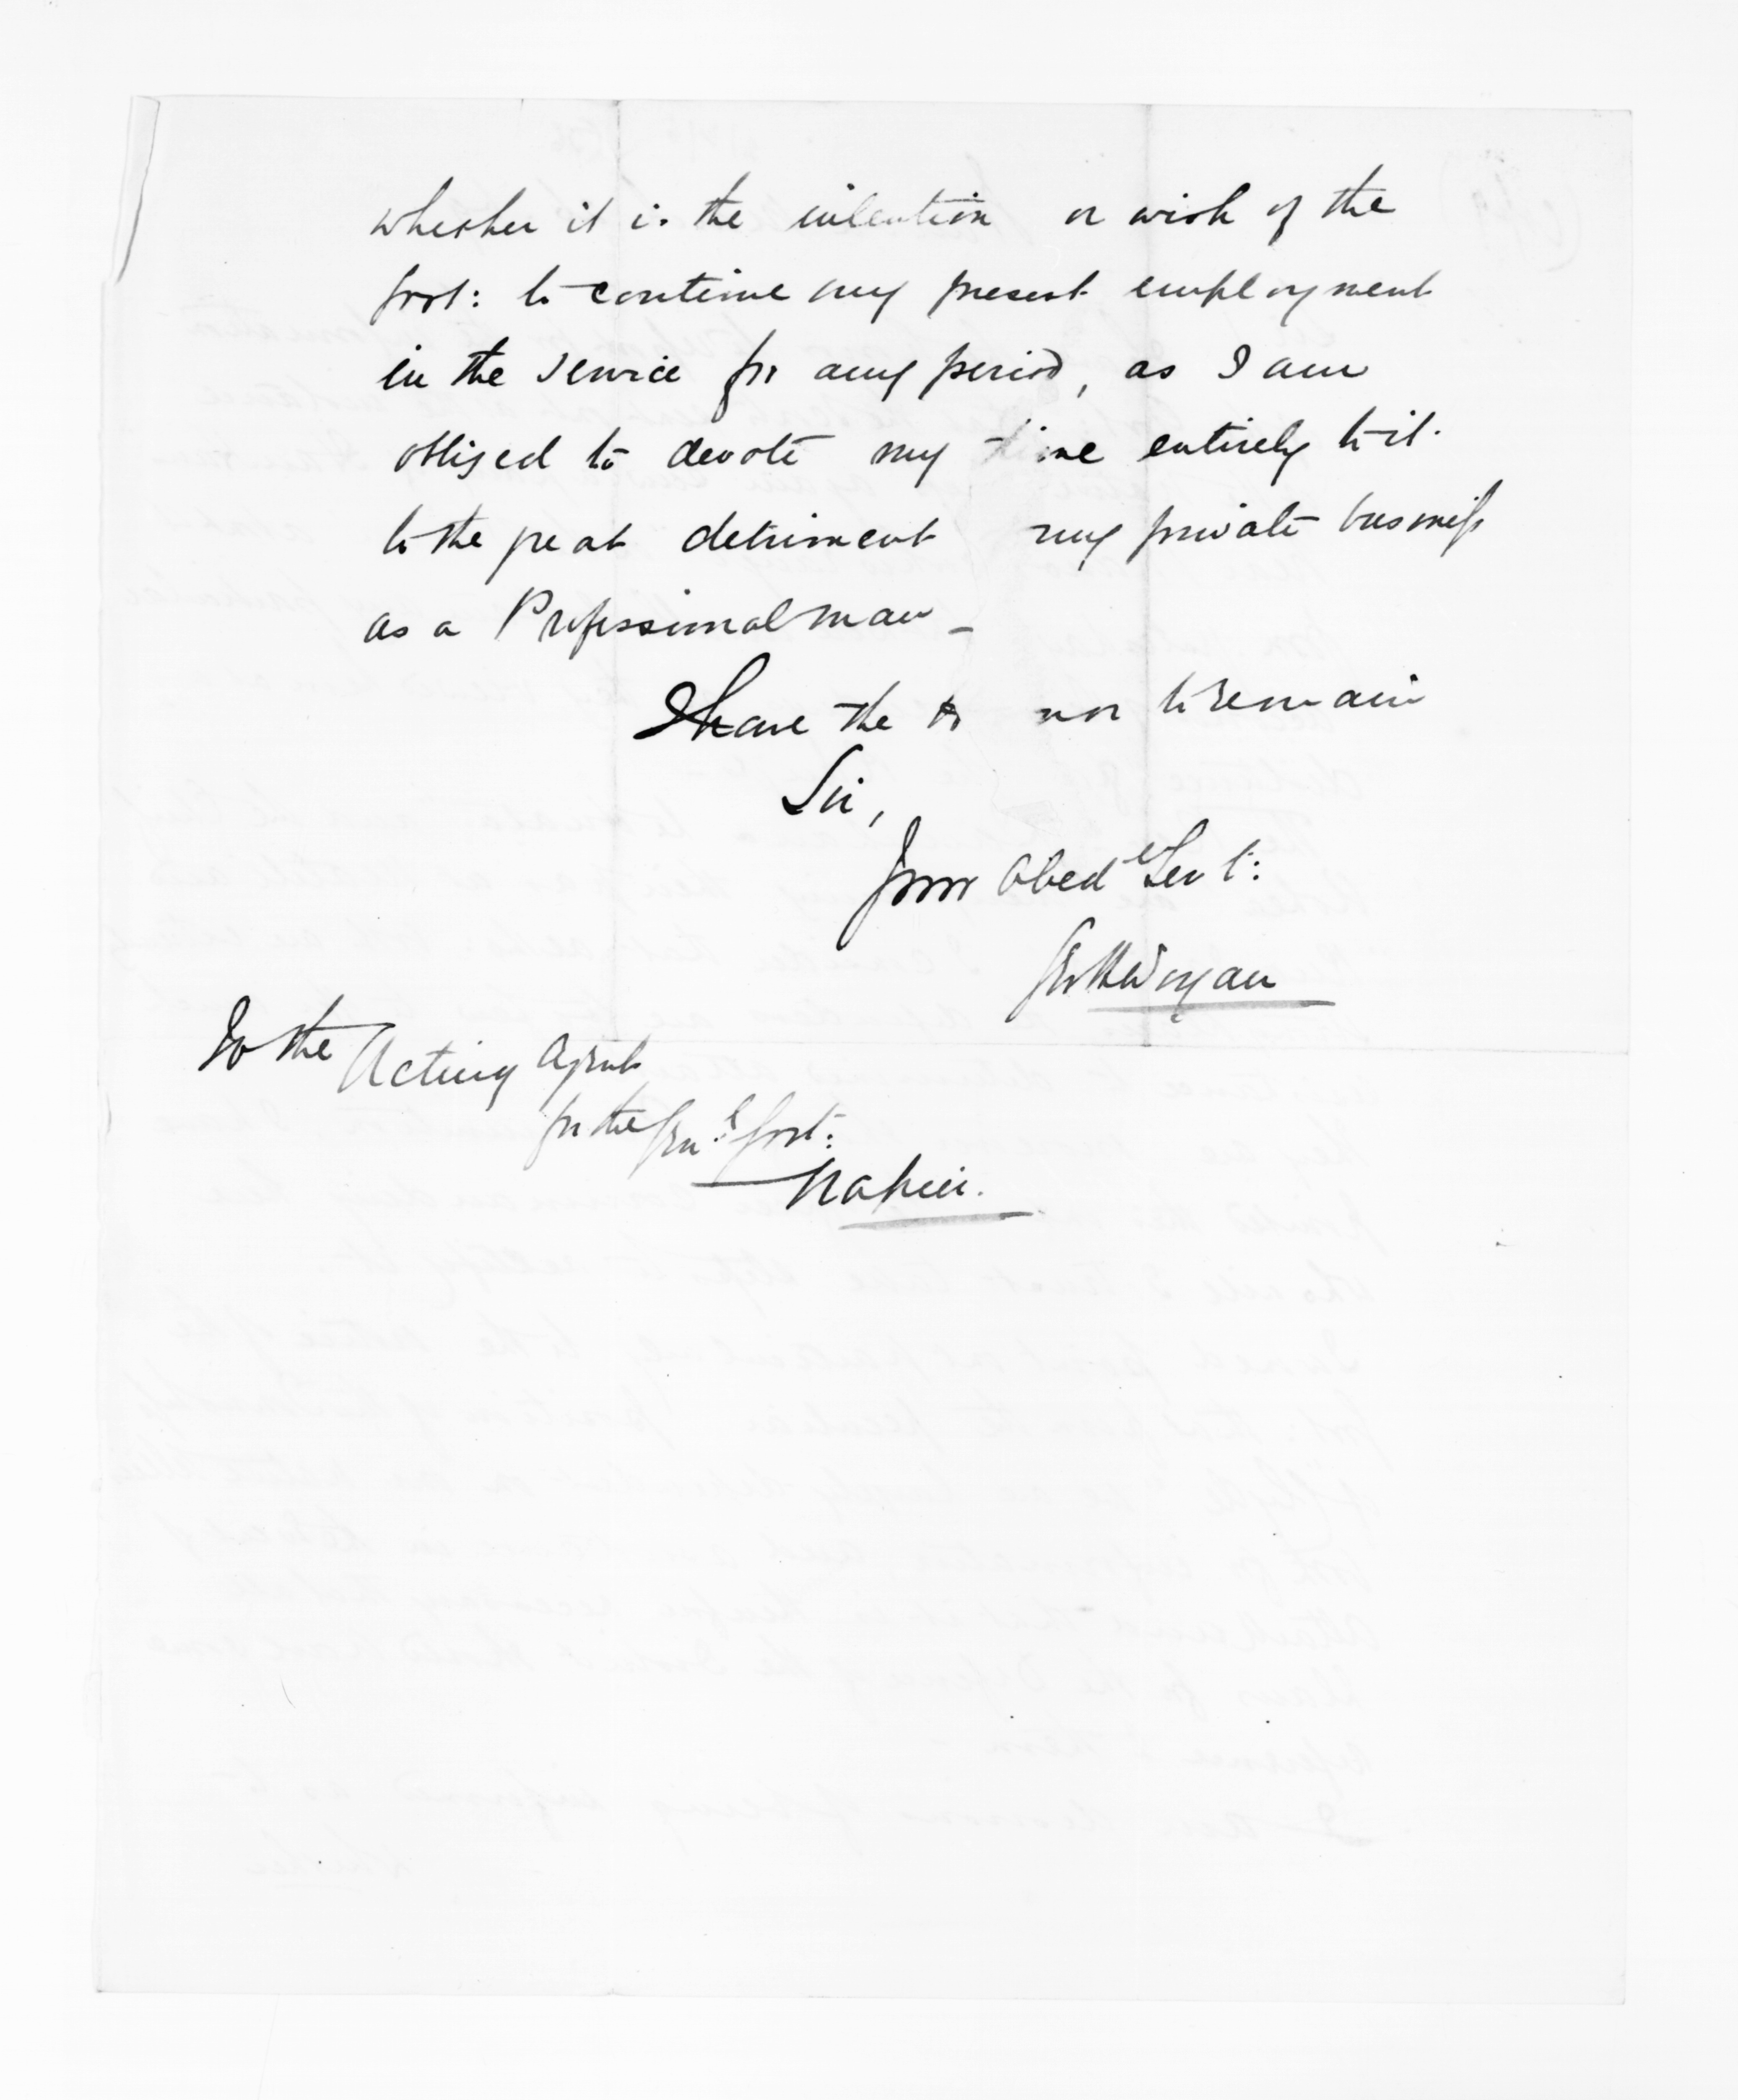 whether it is the intention or wish of the
Govt: to continue my present employment
in the service for any period, as I am
obliged to devote my time entirely to it
to the great detriment my private business
as a Professional man _
I have the honor to remain
Sir,
Your Obed e Servt:
To the Acting Agent
for the Genl Govt:
Napier.